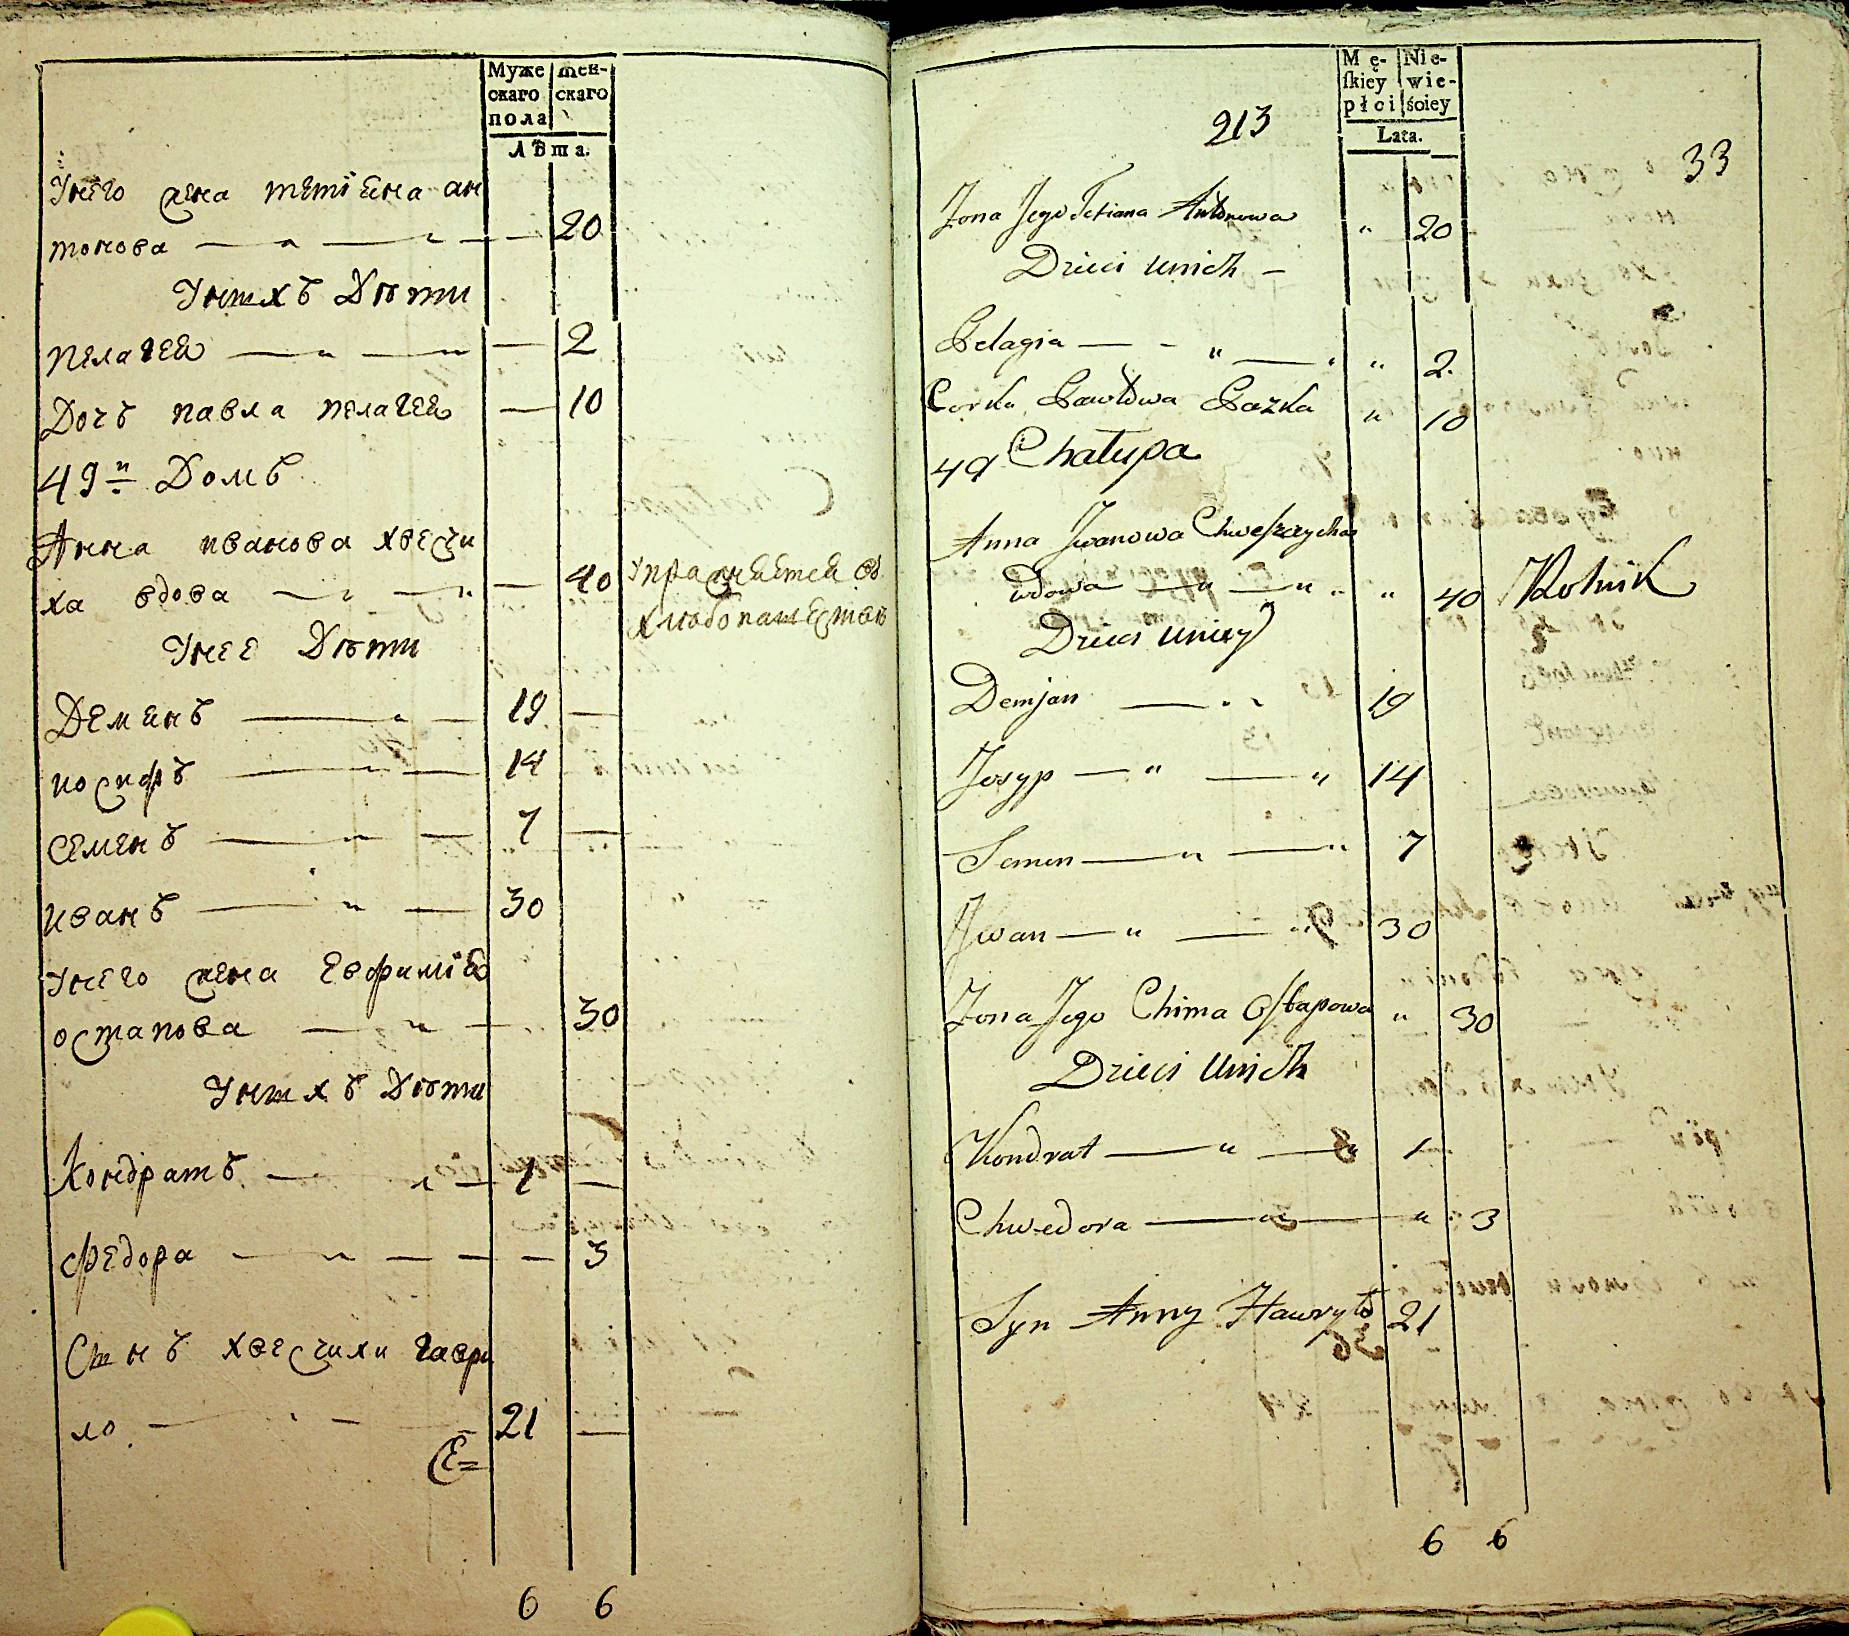 Муже
скаго
пола
жен-
скаго
Лѣта.
Унего жена тетіяна ан
тонова 20
Унихъ Дѣти
пелагея 2
Дочъ павла пелагея 10
49й Домъ
Анна иванова хвесчи
ха вдова 40
упражняется въ
хлѣбопашествѣ
Унее Дѣти
Демянъ 19
иосифъ 14
семенъ 7
иванъ 30
Унего жена Евфимія
остапова 30
Унихъ Дѣти
Кондратъ 1
федора 3
Сынъ хвесчихи гаври
ло 21
6 6
213
33
Mę-
skiey
płci
Nie-
wie-
ściey
Lata.
Żona Jego Tetiana Antonowa " 20
Dzieci unich
Pelagia " " 2.
Corka Pawłowa Pazka " 10
49 Chałupa
Anna Jwanowa Chweszczycha
wdowa " " " 40 Rolnik
Dzieci uniey
Demjan 19
Josyp " " 14
Semen " " 7
Jwan " " 30
Żona Jego Chima Ostapowa " 30
Dzieci Unich
Kondrat " " 1
Chwedora " " 3
Syn Anny Hawryło 21
6 6